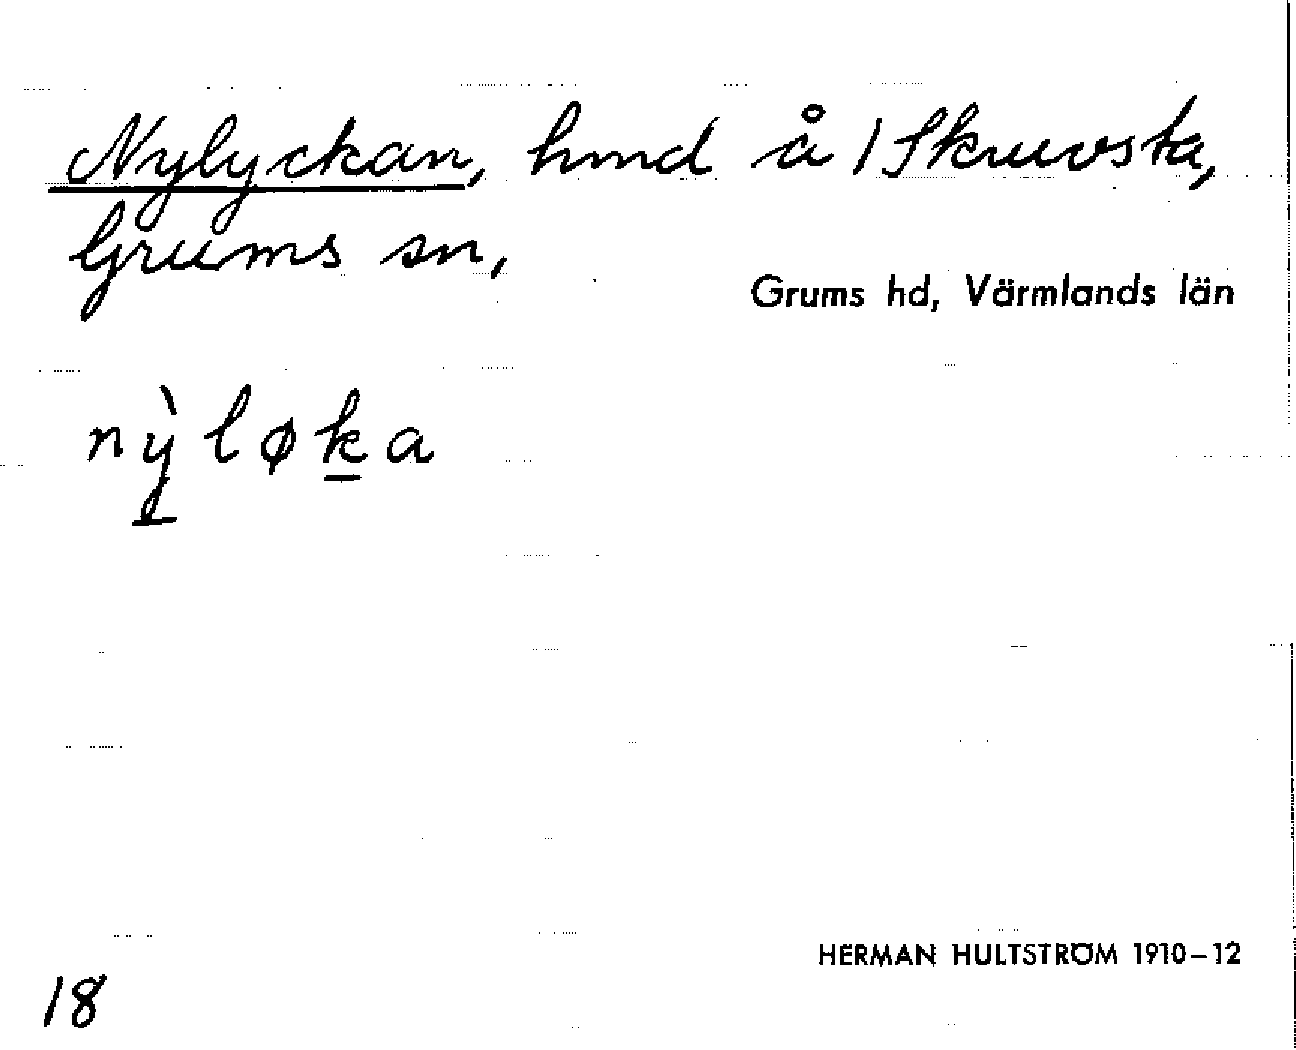 Nylyckan, hmd å 1 Skruvsta,
Grums sn,
Grums hd, Värmlands län
nỳløka
HERMAN HULTSTRÖM 1910–12
18